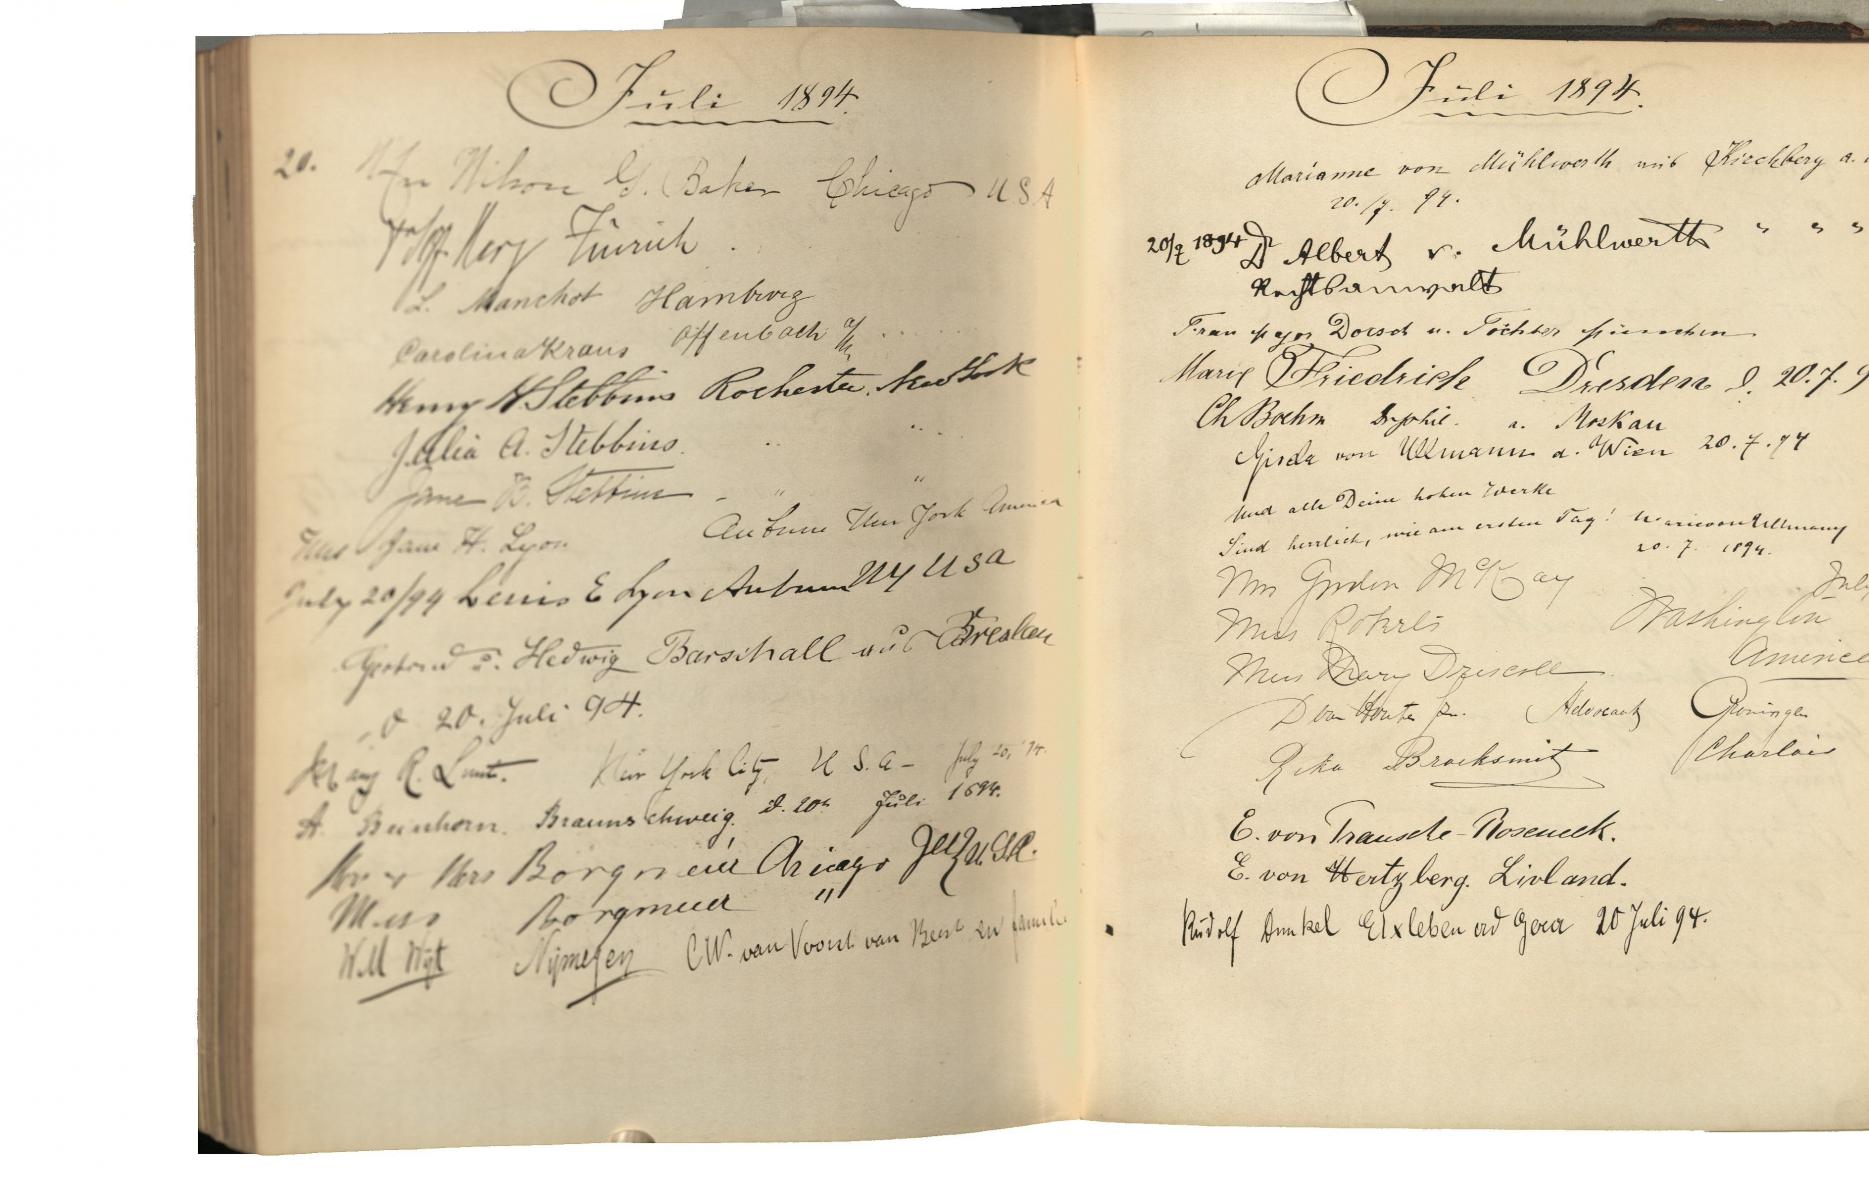 Juli 1894.
20. Wilson G. Baker Chicago U.S.A
Zürich
L. Manchot Hamburg
Carolina Kraus Offenbach a/M
Henry H Stebbins Rochester. New York
Julia A. Stebbins. " "
Jane B. Stebbins - " "
Jane H. Lyon Auburn New York America
July 20/94 Lewis E Lyon Auburn NY USA
Gertrud u. Hedwig Barschall aus Breslau
d 20. Juli 94.
Mary R. Lunt. New York City, U S. A - July 20, '94.
A. Beinhorn. Braunschweig. d. 20n Juli 1894.
Mr & Mrs Borgmeier Chicago Ill U.S.A.
Miss Borgmeier "
W.M Wijt Nijmegen C.W. van Voorst van Beest en familie
Juli 1894.
Marianne von Mühlwerth aus Kirchberg a.
20./7. 94.
20/7 1894 Dr Albert v. Mühlwerth " " "
Rechtsanwalt
Frau Major Doesch u. Töchter München
Marie Friedrich Dresden d. 20.7.9
Ch Boehm Dr phil. a. Moskau
Gisela von Ullmann a. Wien 20.7.94
Und alle Deine hohen Werke
Sind herrlich, wie am ersten Tag! Marie von Ullmann
20. 7. 1894.
Mrs Gordon McKay July
Miss Roberts Washington
Miss Mary Driscoll America
D van Houten Jr. Advocaat Groningen
Rika Brocksmit Charlois
E. von Transehe-Roseneck.
E. von Hertzberg. Livland.
Rudolf Dunkel Elxleben ad Gera 20 Juli 94.